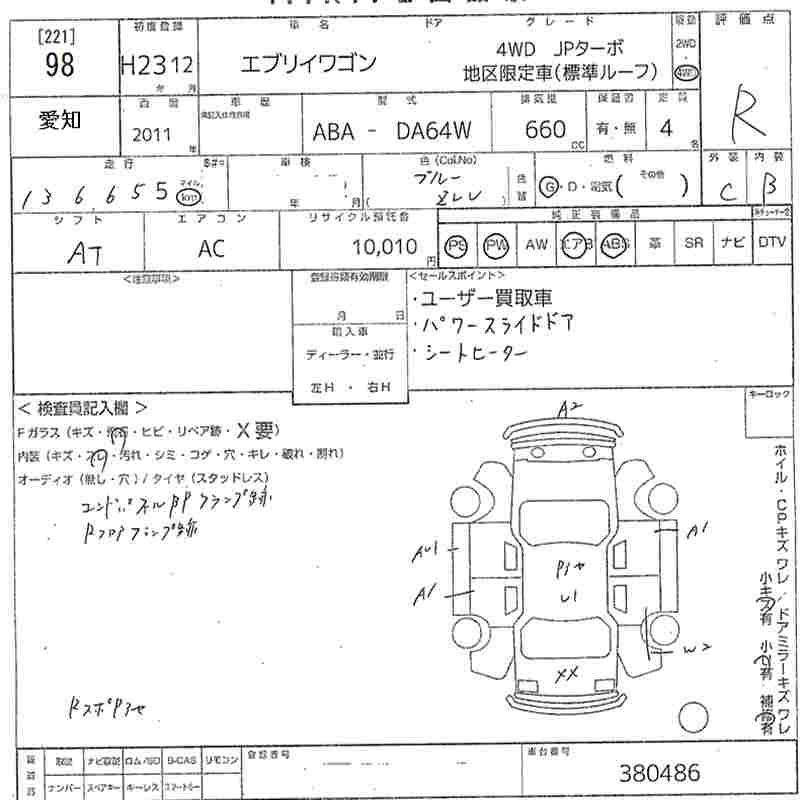 [221]
98
初度登録
H23 12
年 月
車名
エブリイワゴン
ドア
グレード
4WD JPターボ
地区限定車(標準ルーフ)
2WD
4WD
評価点
R
愛知
西暦
2011
年
車歴
型式
ABA - DA64W
排気量
660
CC
保証書
有・無
定員
4
名
外装
C
内装
B
走行
136,655
マイル
km
車検
年 月
色(Col.No)
ブルー
ZLU
色替
燃料
G・D・電気( その他 )
シフト
AT
エアコン
AC
リサイクル預託金
10,010
円
純正装備品
PS PW AW エアB ABS 革 SR ナビ DTV
<注意事項>
登録書類有効期限
月 日
<セールスポイント>
・ユーザー買取車
・パワースライドドア
・シートヒーター
輸入車
ディーラー・並行
左H ・ 右H
<検査員記入欄>
Fガラス(キズ・飛石・ヒビ・リペア跡・X要)
内装(キズ・スレ・汚れ・シミ・コゲ・穴・キレ・破れ・割れ)
オーディオ(無し・穴)/タイヤ(スタッドレス)
エンドパネルPP クランプ跡
Rフロアクランプ跡
キーロック
A2
AU1
A1
A1
Pハヤ
U1
W2
XX
ホイル・CPキズワレ/ドアミラーキズワレ
小キズ有 小凹有 補修有
Rスポ Pハセ
取説 ナビ取説 ロム/SD B-CAS リモコン
ナンバー スペアキー キーレス スマートキー
登録番号
車台番号
380486